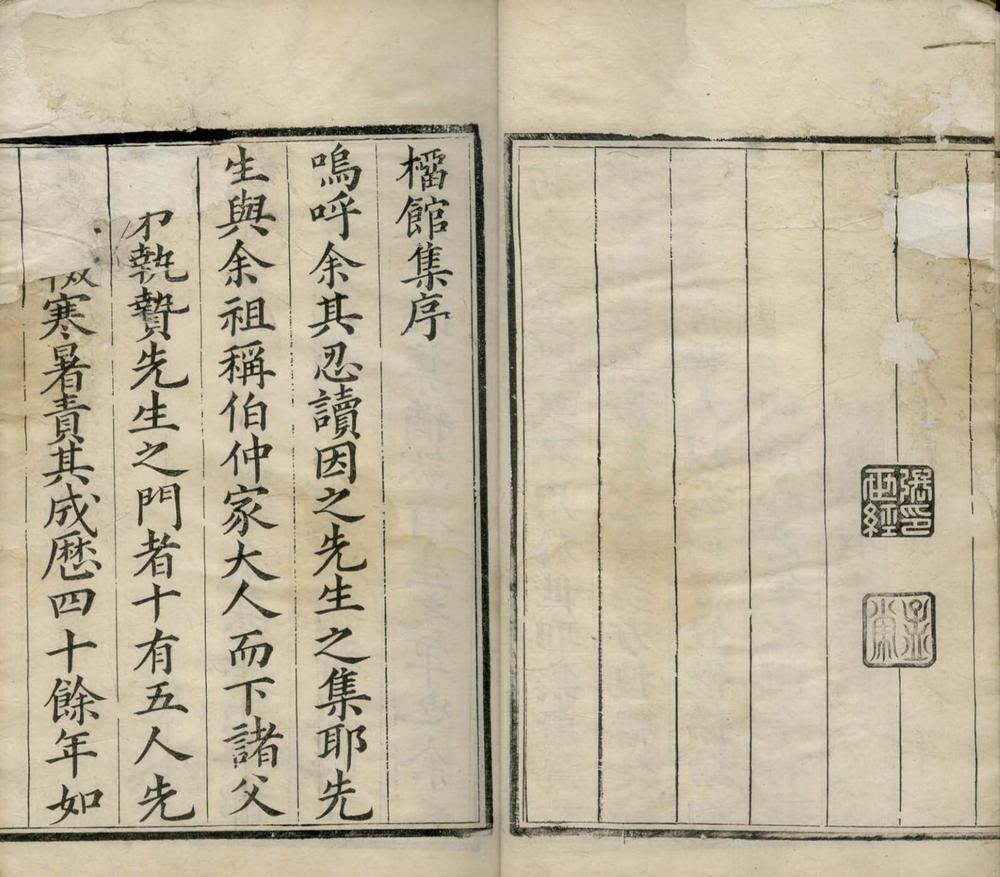 橊館集序
嗚呼余其忍讀因之先生之集耶先
生與余祖稱伯仲家大人而下諸父
執贄先生之門者十有五人先
寒暑責其成歷四十餘年如